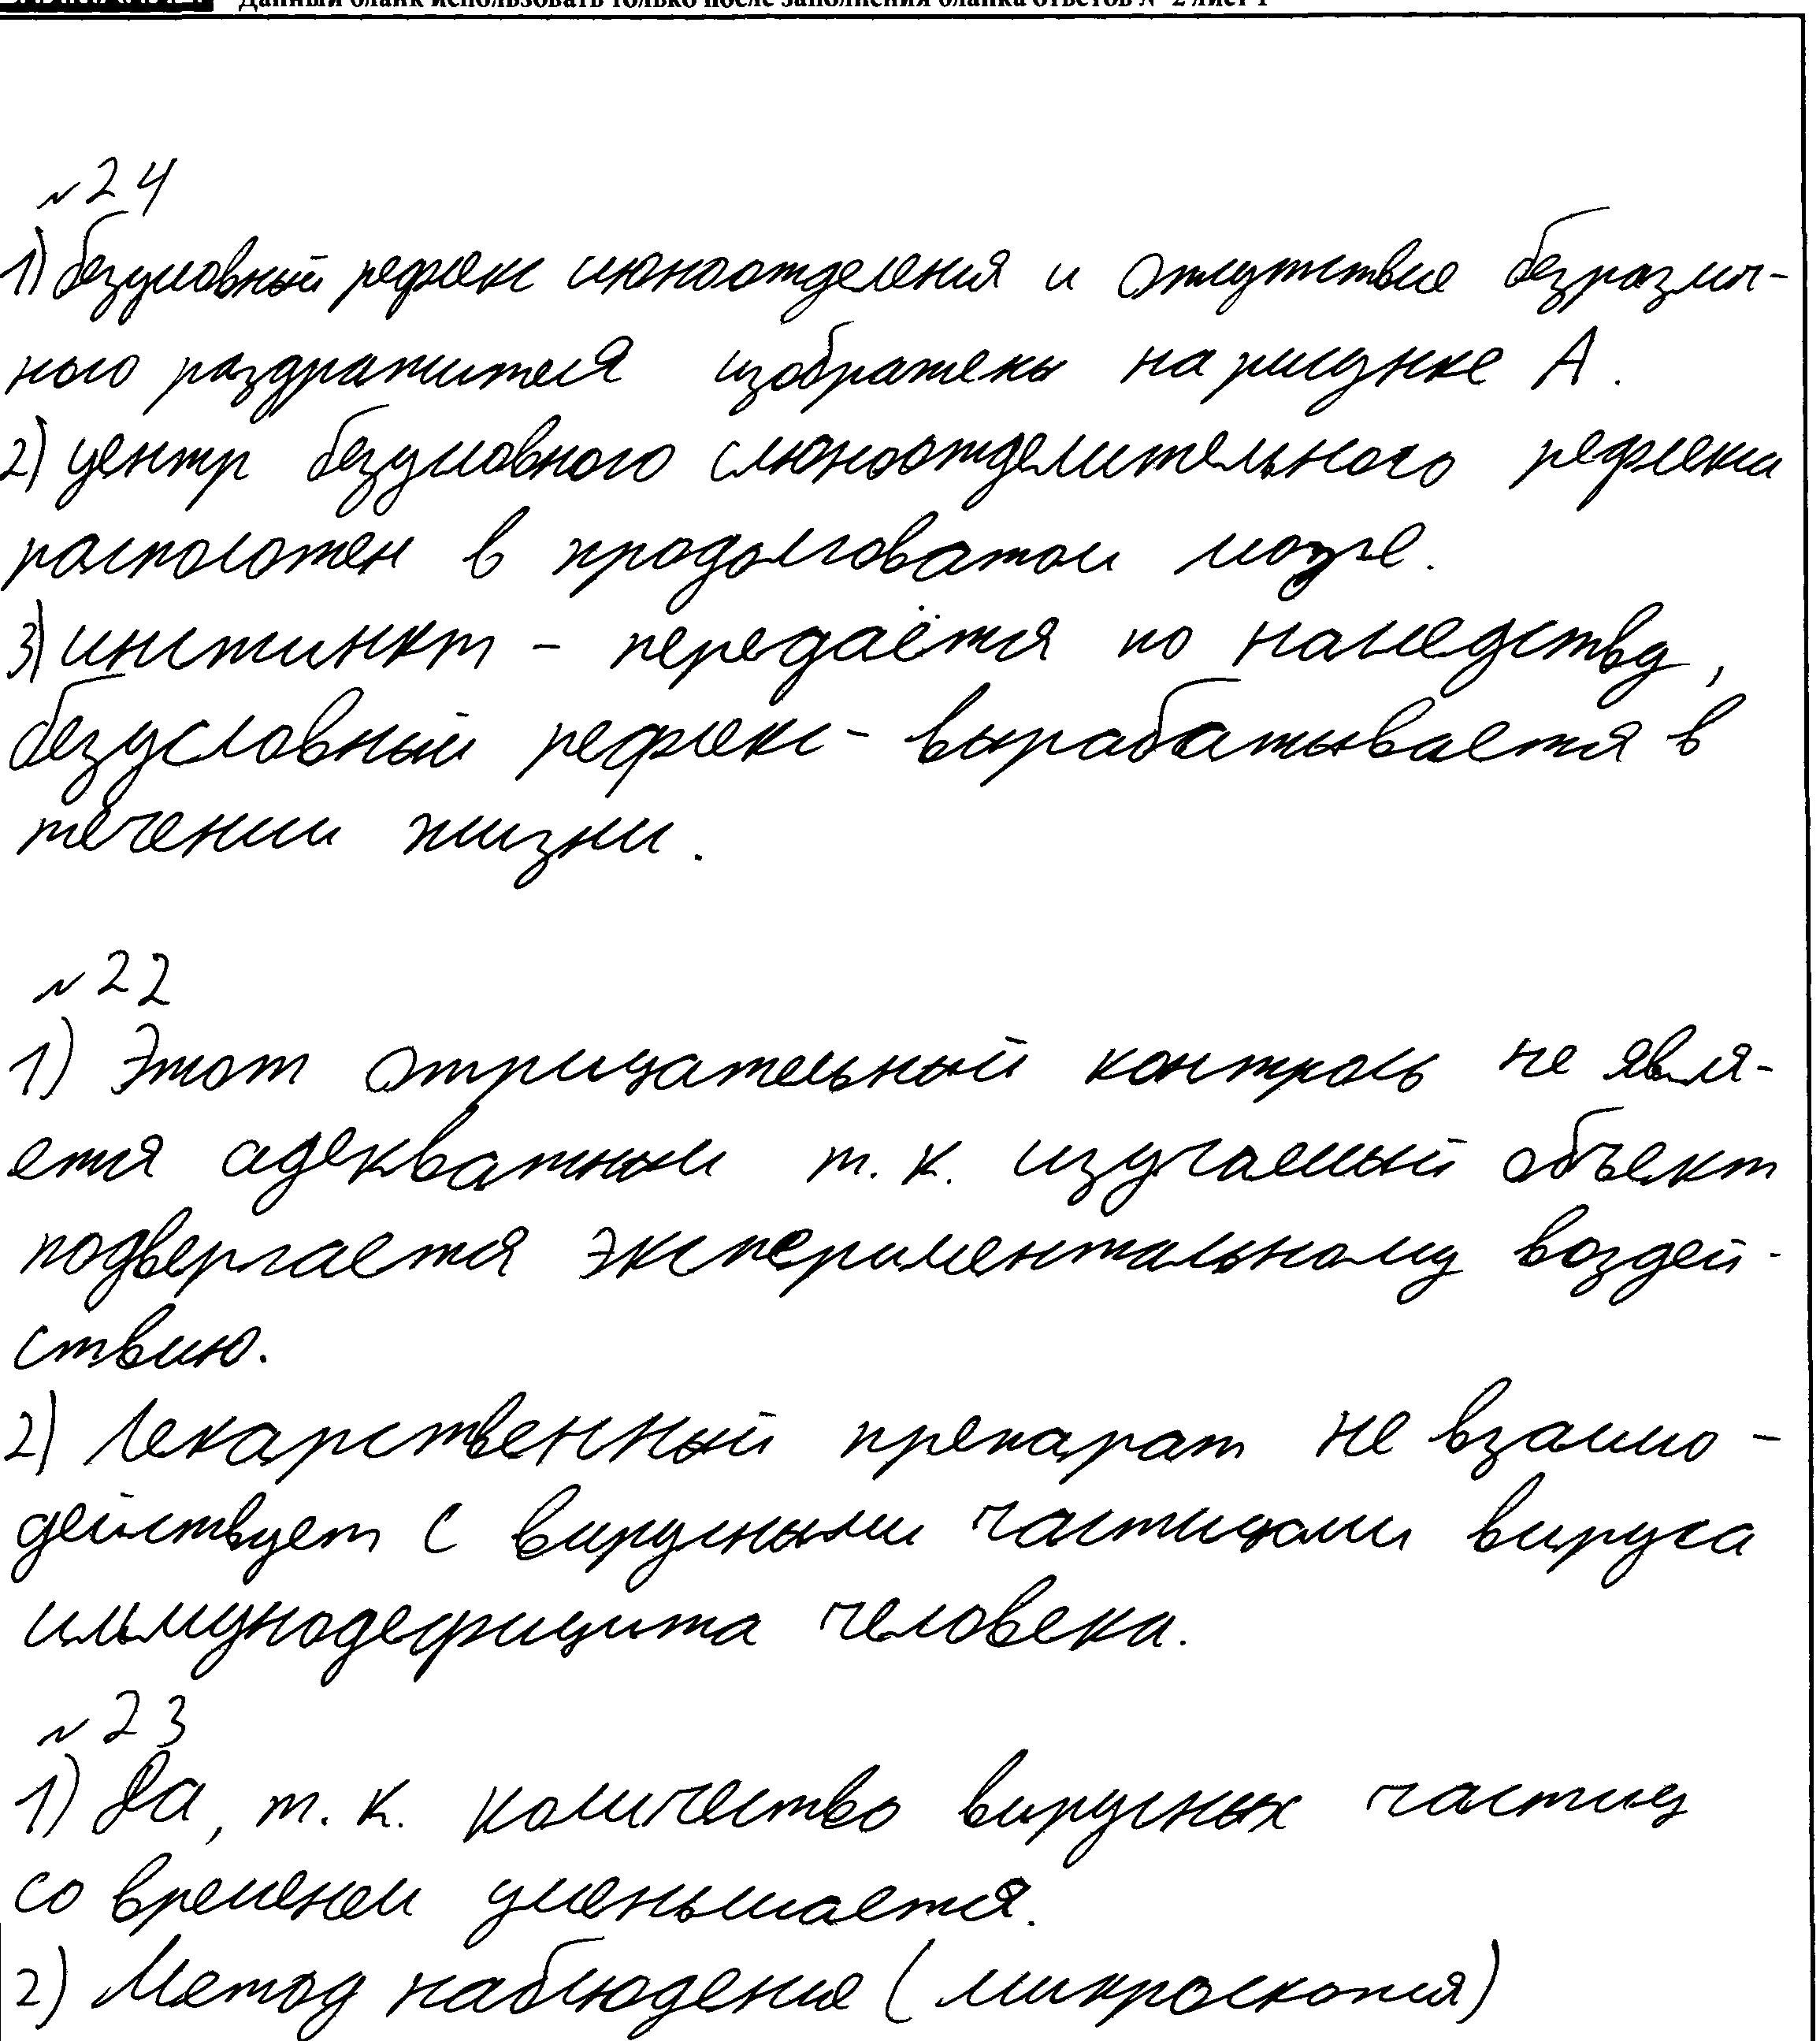 Данный бланк использовать только после заполнения бланка ответов № 2 лист 1
№24
1) безусловный рефлекс слюноотделения и отсутствие безразлич-
ного раздражителя изображены на рисунке А.
2) центр безусловного слюноотделительного рефлекса
расположен в продолговатом мозге.
3) инстинкт - передаётся по наследству,
безусловный рефлекс - вырабатывается в
течении жизни.
№22
1) Этот отрицательный контроль не явля-
ется адекватным т.к. изучаемый объект
подвергается экспериментальному воздей-
ствию.
2) Лекарственный препарат не взаимо-
действует с вирусными частицами вируса
иммунодефицита человека.
№23
1) Да, т.к. количество вирусных частиц
со временем уменьшается.
2) Метод наблюдение (микроскопия)